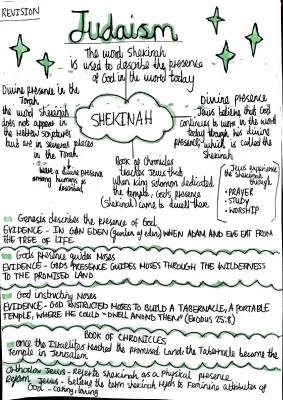 REVISION
Judaism
The word shekinah
is used to describe the presence
of God in the word today
Divine presence in the
Torah
the word shekinah
does not appear in
the Hebrew scriptures
but are in several places
in the Torah
where a divine presence
among humans is
SHEKINAH
Divine presence
Jews believe that God
continues to work in the world
today through his divine
presence, which is called the
Shekinah
Book of Chronicles
teaches Jews that
when king solomon dedicated
the temple, God's presence
(shekinah) came to dwell there
Jews experience
the shekinah
through
• PRAYER
• STUDY
• WORSHIP
Genesis describes the presence of God
EVIDENCE - IN GAN EDEN (garden of eden) WHEN ADAM AND EVE EAT FROM
THE TREE OF LIFE
Gods presence guides Moses
EVIDENCE - GODS PRESENCE GUIDES MOSES THROUGH THE WILDERNESS
TO THE PROMISED LAND
God instructing Moses
EVIDENCE - GOD INSTRUCTED MOSES TO BUILD A TABERNACLE, A PORTABLE
TEMPLE, WHERE HE COULD "DWELL AMONG THEM" (EXODUS 25:8)
BOOK OF CHRONICLES
once the Israelites reached the promised Land, the Tabernacle became the
Temple in Jerusalem
orthodox Jews - refer to shekinah as a physical presence
Reform Jews - believe the term shekinah to Feminine attributes of
God - caring, loving